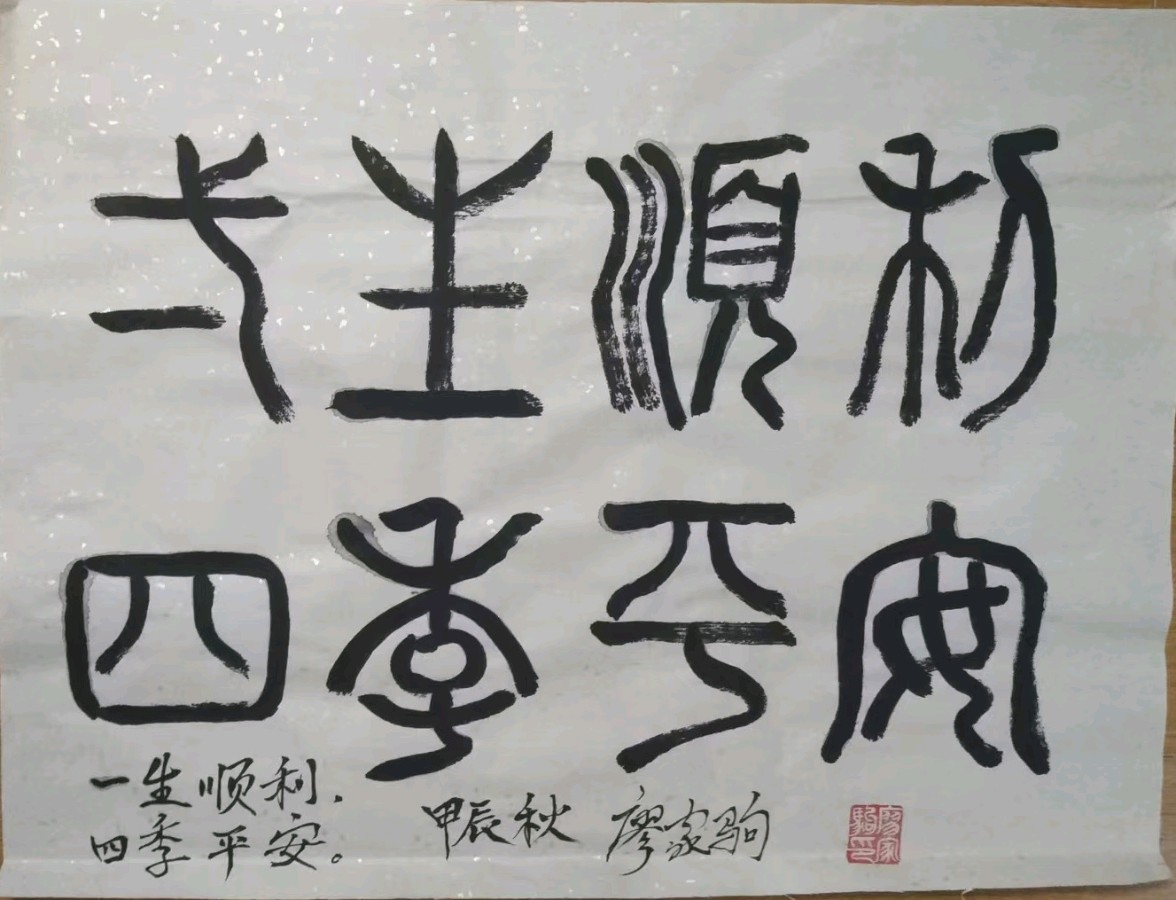 弌生順利
四季平安
一生顺利，
四季平安。
甲辰秋 廖家驹
廖家駒印